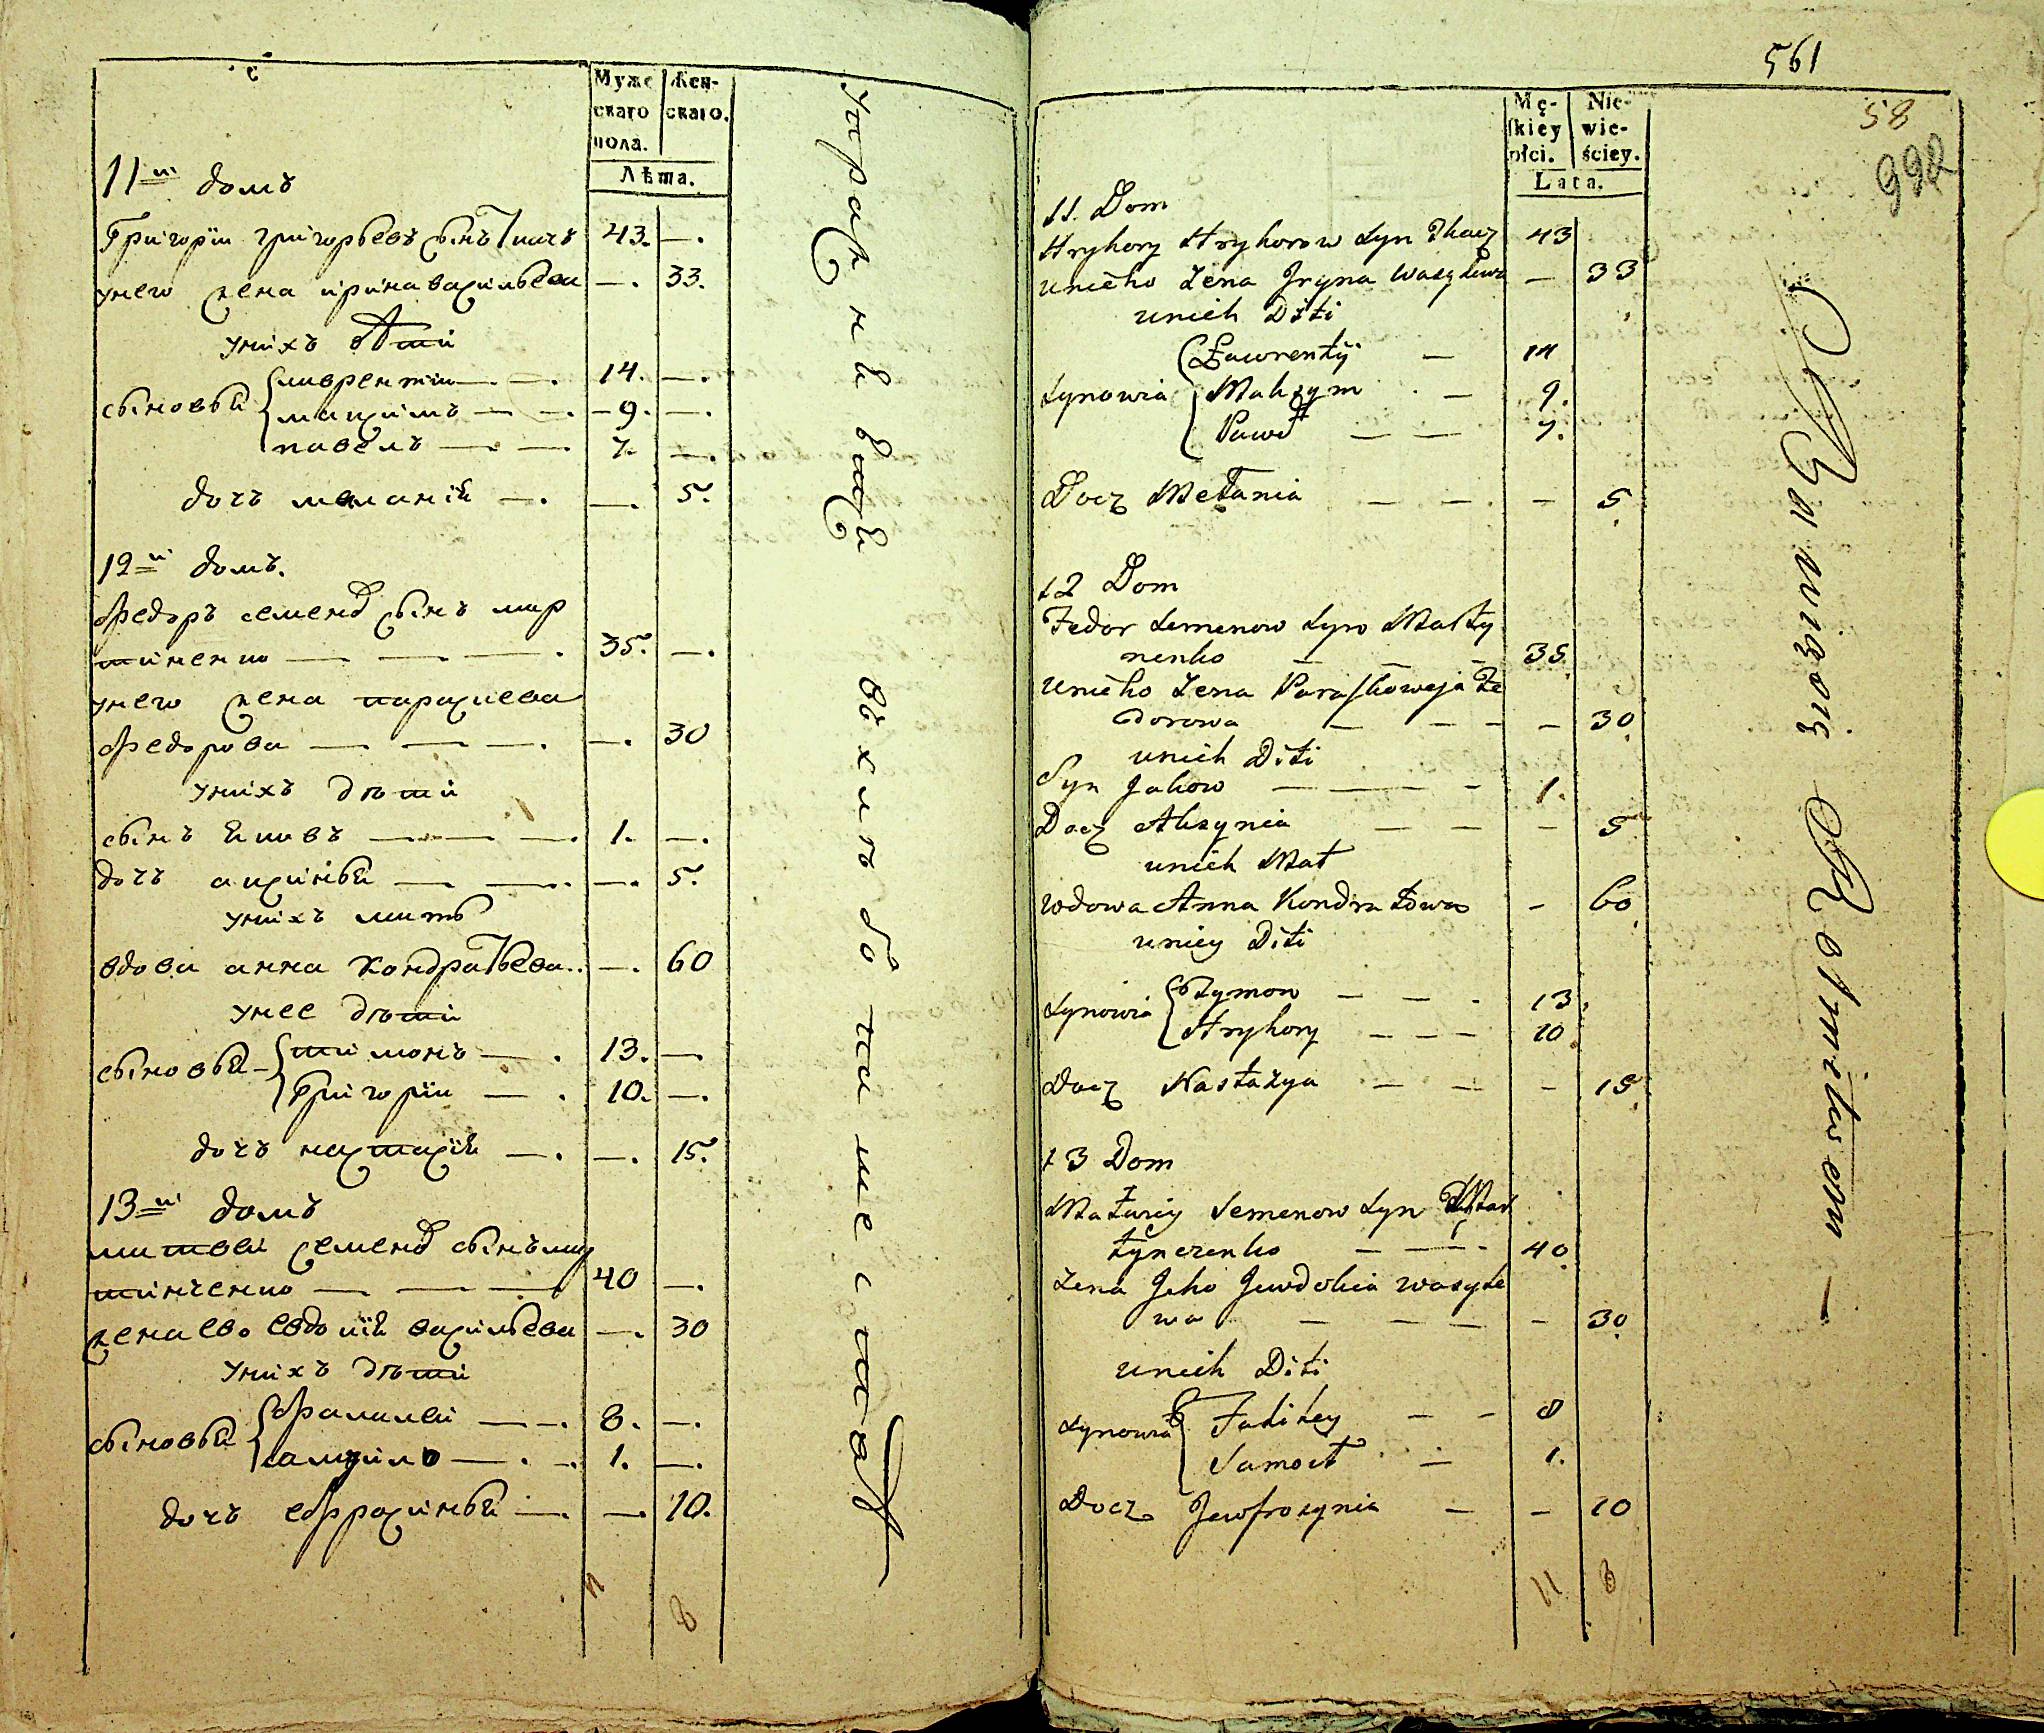 Муже
скаго
пола.
Жен-
скаго.
Лѣта.
11й домъ
Григорїи григорьевъ сынъ Ткачъ 43. —.
унего жена ирина васильева —. 33.
унихъ дѣти
сыновья
лаврентїи — —. 14. —.
максимъ — —. 9. —.
павелъ — —. 7. —.
дочь маланїя —. —. 5.
12й домъ.
Федоръ семенов сынъ мар
тиненко — — —. 35. —.
унего жена параскева
федорова — — —. —. 30
унихъ дѣти
сынъ яковъ — — —. 1. —.
дочь аксинья — —. —. 5.
унихъ мать
вдова анна Кондратьева.. —. 60
унее дѣти
сыновья —
тимонъ — . 13. —.
Григорїи — . 10. —.
дочь настасїя —. —. 15.
13й домъ
матвеи семенов сынъ мар
тинченко — — — 40 —.
жена ево евдокїя васильева —. 30
унихъ дѣти
сыновья
фалилеи — —. 8. —.
самуило — . —. 1. —.
дочь ефросинья —. —. 10.
11 8
въ хлѣбопашества
561
58
992
Mę-
skiey
płci.
Nie-
wie-
ściey.
Lata.
11. Dom
Hryhory Hryhorow Syn Tkacz 43
unieho Żena Jryna Wasylewa — 33
unich Diti
Synowia
Ławrentÿ — 14
Maksym — 9.
Paweł — — 7.
Docz Mełania — — — 5
12 Dom
Fedor Semenow Syn Marty
nenko — — — 35
Unieho Żena Paraskoweja Fe
dorowa — — — — 30
unich Diti
Syn Jakow — — — 1.
Docz Aksynia — — — 5
unich Mat
Wdowa Anna Kondratowa — 60
uniey Diti
Synowia
Tymon — — . 13.
Hryhory — — — 10
Docz Nastazya — — — 15
13 Dom
Matwiy Semenow Syn Mar
tynczenko — — — 40
Żena Jeho Jewdokia Wasyle
wa — — — — 30
unich Diti
Synowia
Faliley — — 8
Samoił — 1.
Docz Jewfrosynia — — 10
11 8